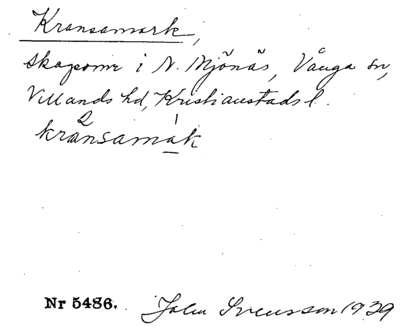 Kransamark,
Skogsområde i N. Mjönäs, Vånga sn,
Villands hd, Kristianstads l.
kransamak
Nr 5486. John Svensson 1939